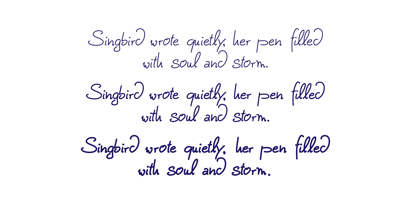 Singbird wrote quietly, her pen filled
with soul and storm.
Singbird wrote quietly, her pen filled
with soul and storm.
Singbird wrote quietly, her pen filled
with soul and storm.